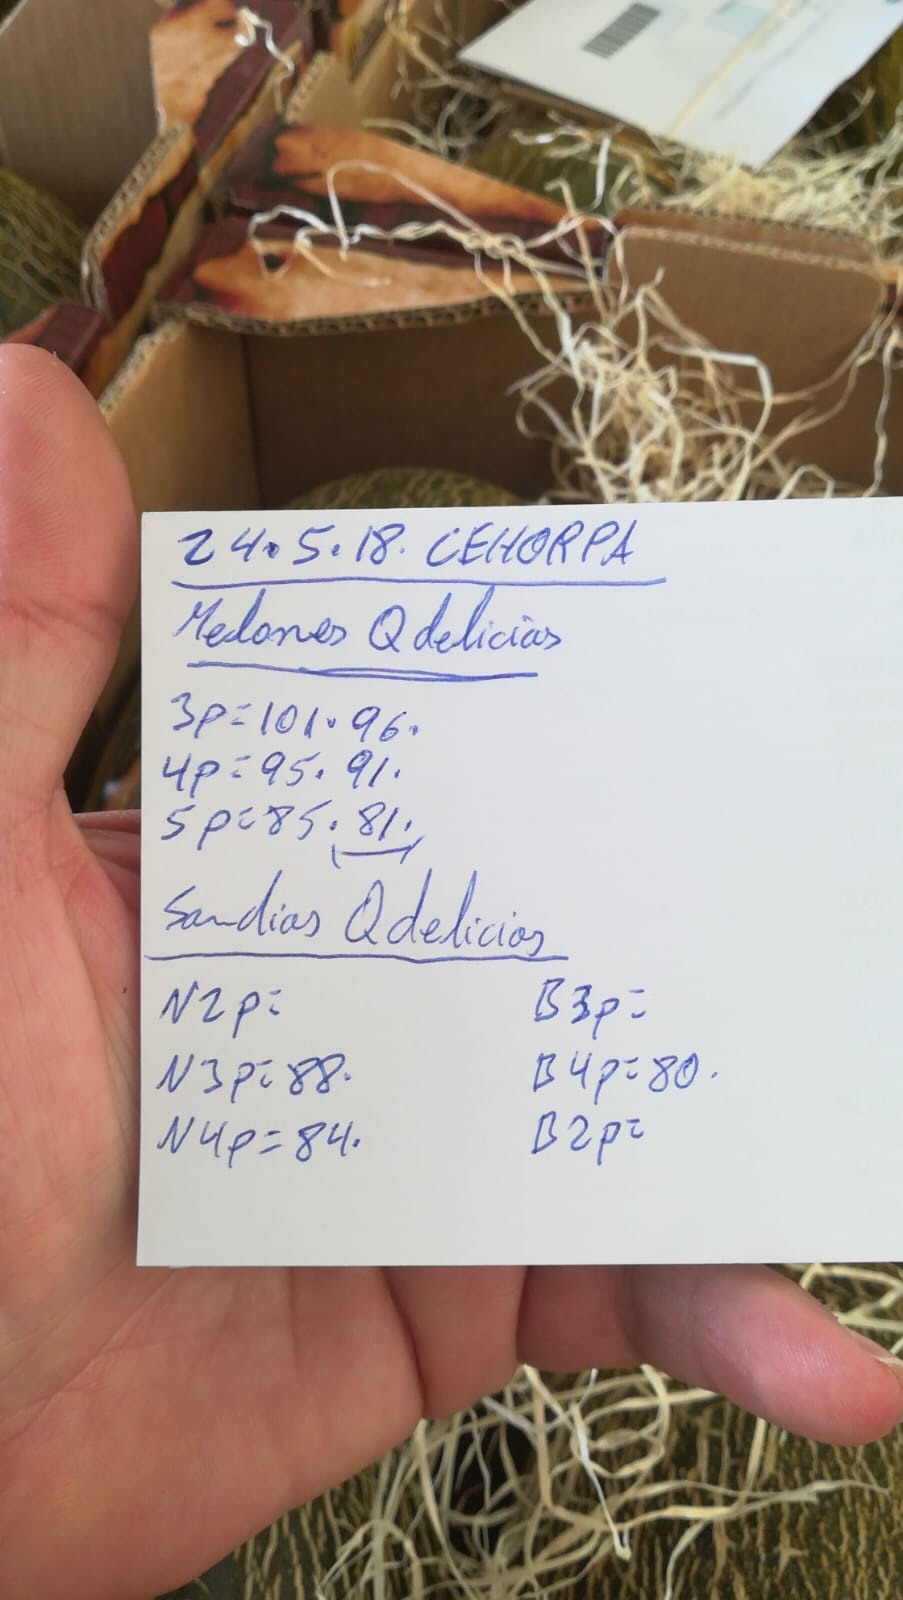 24.5.18. CEHORPA
Melones Qdelicias
3p=101.96.
4p=95.91.
5p=85.81.
Sandias Qdelicias
N2p=
N3p=88.
N4p=84.
B3p=
B4p=80.
B2p=